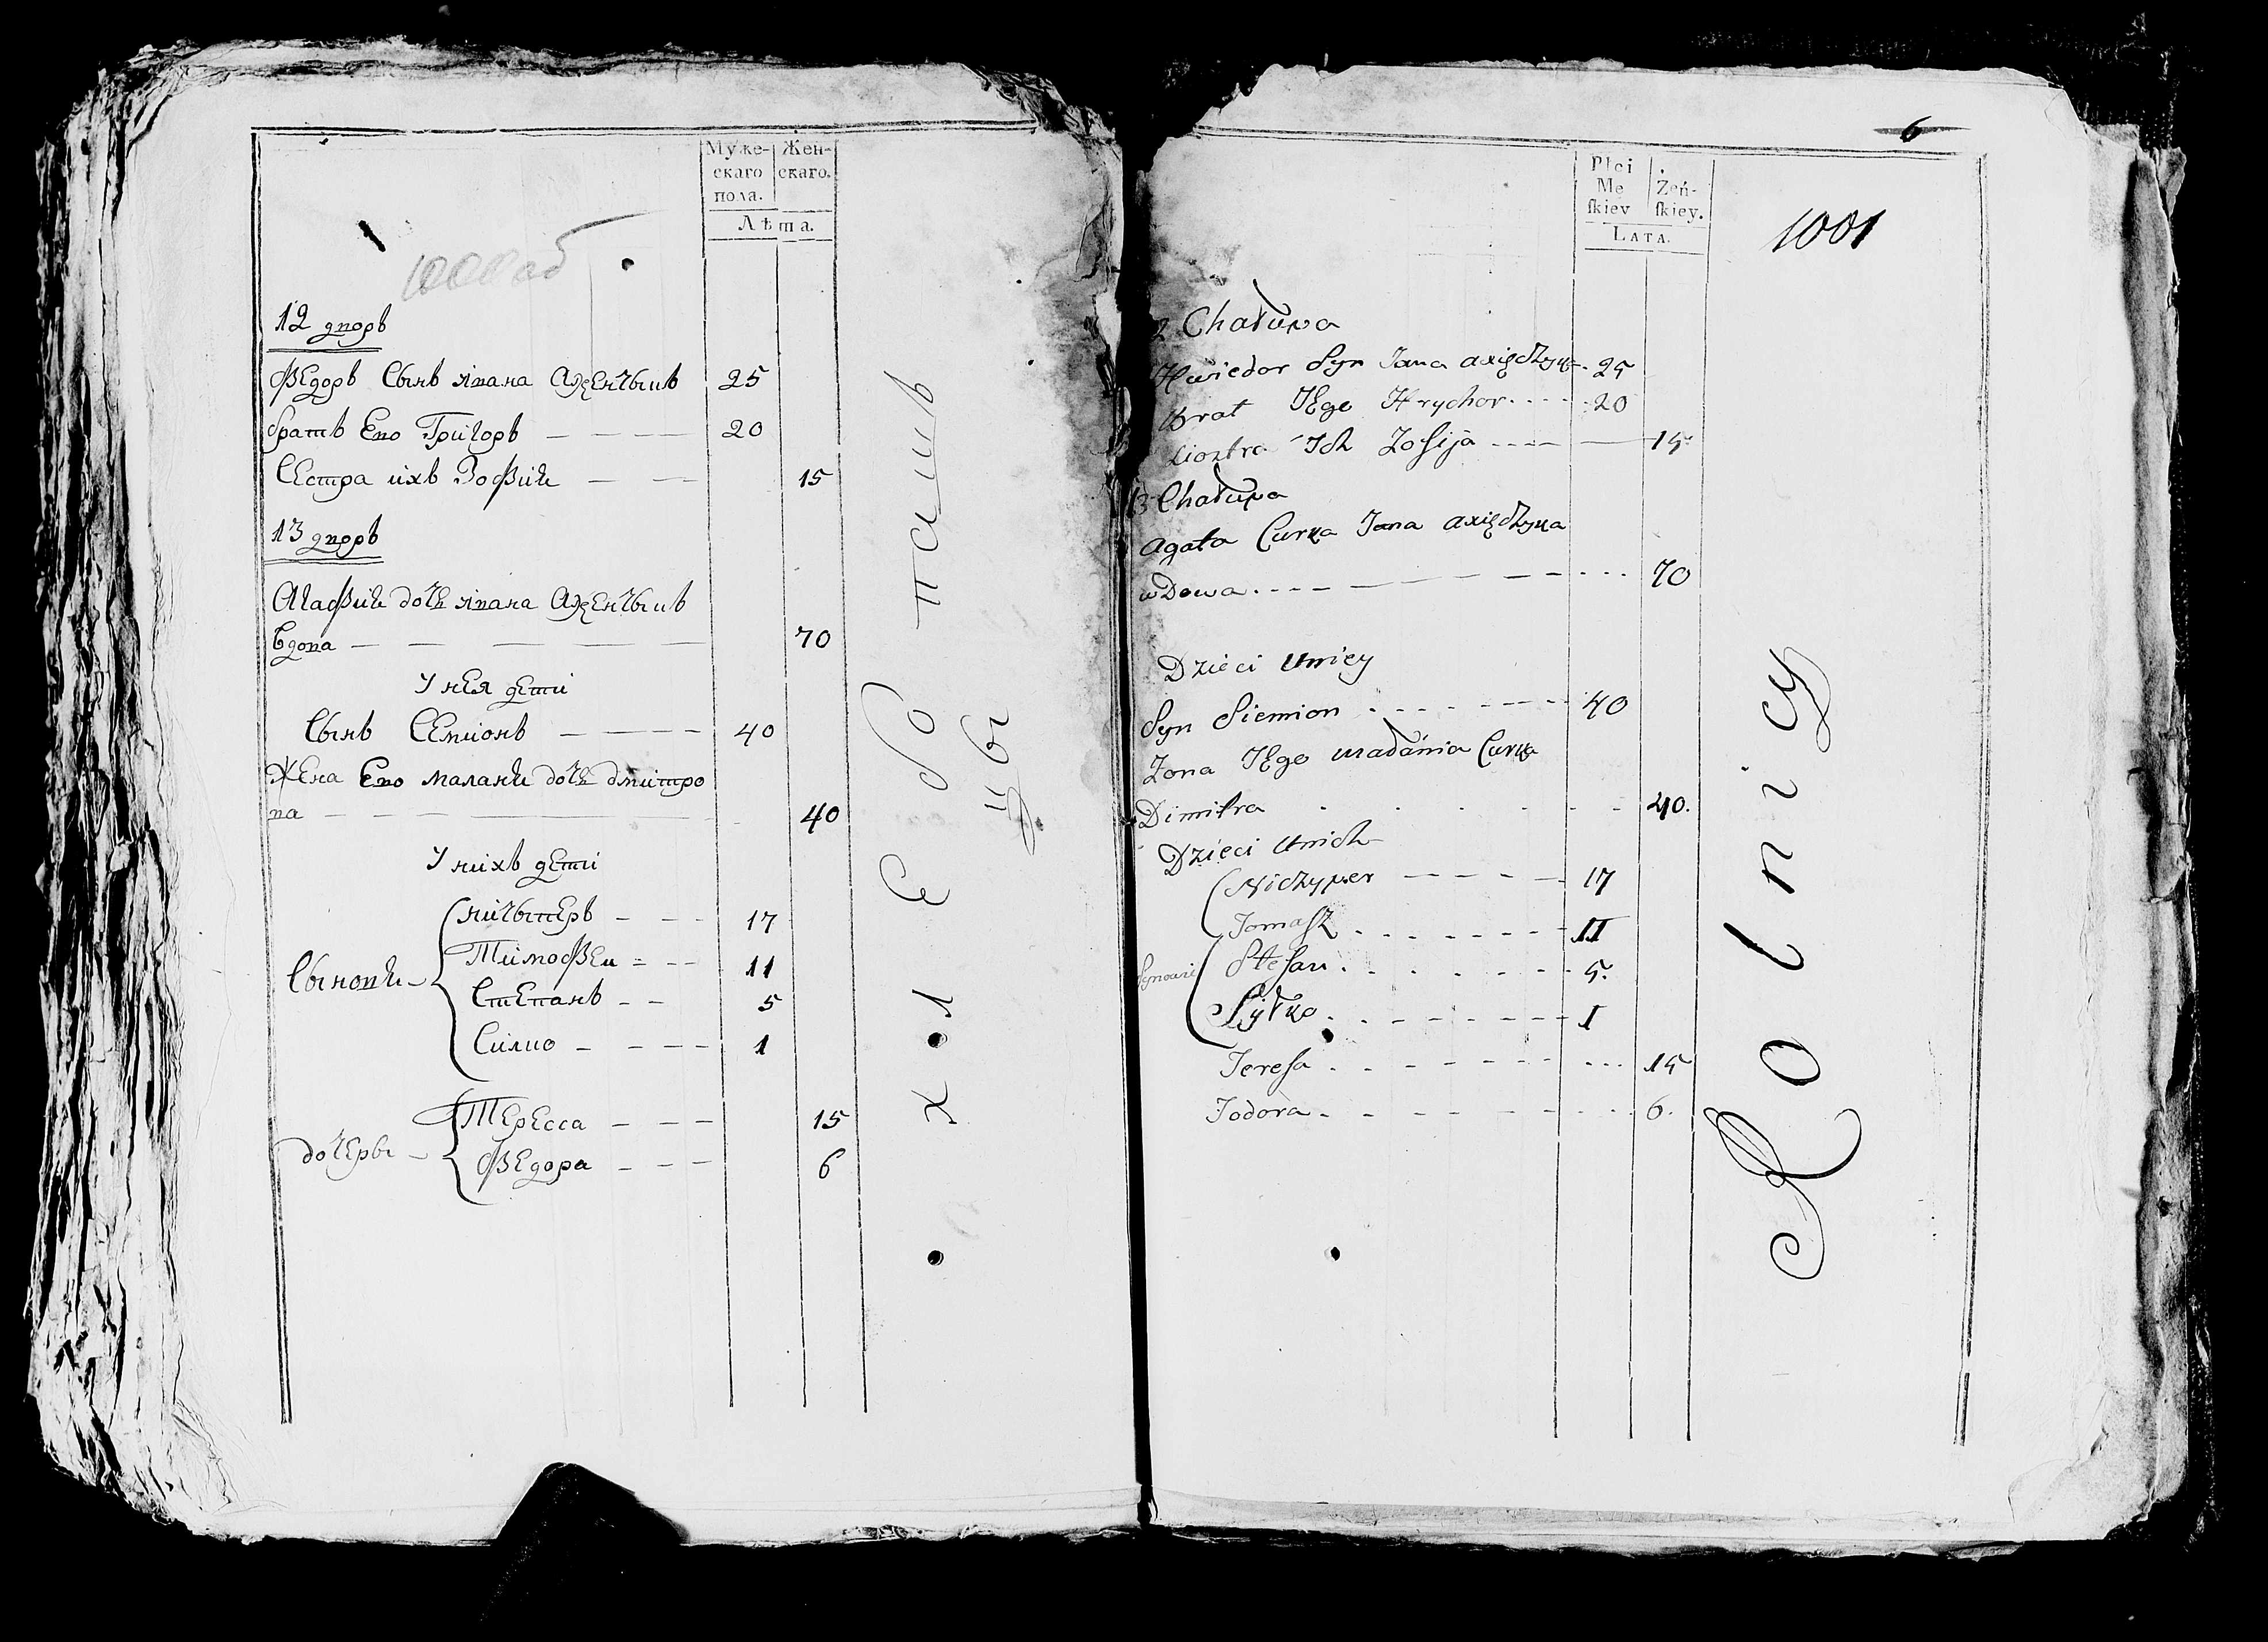 Муже-
скаго
пола.
Жен-
скаго.
Лѣта.
1000 об
12 дворъ
Федоръ Сынъ ивана Аксенчыцъ 25
братъ Его Григоръ 20
Сестра ихъ Зофия 15
13 дворъ
Агафия дочь ивана Аксенчыцъ
Вдова 70
У нея дети
Сынъ Семионъ 40
Жена Его маланя дочь дмитро
ва 40
У нихъ дети
Сыновя
ничыперъ 17
Тимофеи 11
Степанъ 5
Силко 1
дочеры
Тересса 15
Федора 6
хлебопашъ
цы
6
Płci
Mę
ſkiey
Żeń-
ſkiey.
LATA.
1001
2 Chałupa
Hwiedor Syn Jana 25
Brat Jego Hrychor 20
Siostra Ich Zofija 15
13 Chałupa
Agata Curka Jana
wDowa 70
Dzieci Uniey
Syn Siemion 40
Zona Jego Curka
Dimitra 40.
Dzieci Unich
Synowie
Niczyper 17
Tomaſz 11
Stefan 5.
1
Tereſa 15
Todora 6.
Rolnicy